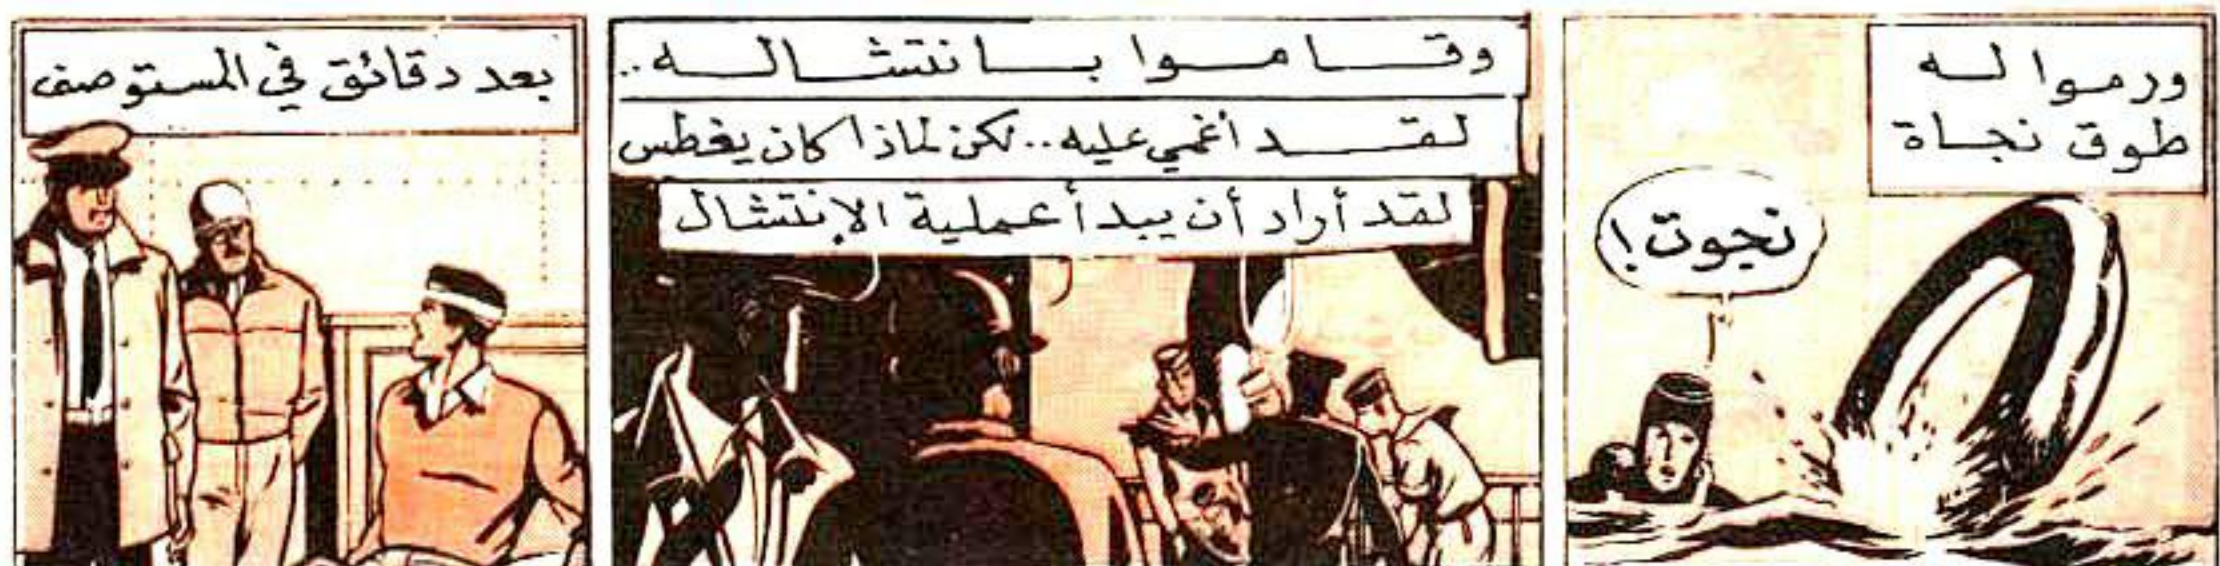 ورموا له
طوق نجاة
نجوت!
وقاموا بانتشاله..
لقد أغمي عليه.. لكن لماذا كان يغطس
لقد أراد أن يبدأ عملية الإنتشال
بعد دقائق في المستوصف